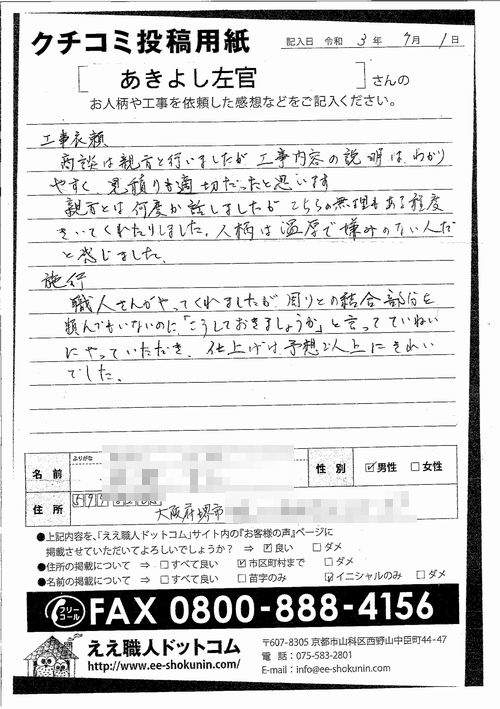 クチコミ投稿用紙
記入日 令和 3 年 7 月 1 日
[ あきよし左官 ] さんの
お人柄や工事を依頼した感想などをご記入ください。
工事依頼
商談は親方と行いましたが工事内容の説明は、わかり
やすく 見積りも適切だったと思います
親方とは何度か話しましたがこちらの無理もある程度
きいてくれたりしました。人柄は温厚で嫌みのない人だ
と感じました。
施行
職人さんがやってくれましたが周りとの結合部分を
頼んでもいないのに「こうしておきましょうか」と言ってていねい
にやっていただき、仕上げは予想以上にきれい
でした。
ふりがな
名前
性別 ☑男性 □女性
住所
大阪府堺市
●上記内容を、「ええ職人ドットコム」サイト内の『お客様の声』ページに
掲載させていただいてよろしいでしょうか? ⇒ ☑良い □ダメ
●住所の掲載について ⇒ □すべて良い ☑市区町村まで □ダメ
●名前の掲載について ⇒ □すべて良い □苗字のみ ☑イニシャルのみ □ダメ
フリーコール FAX 0800-888-4156
ええ職人ドットコム
http://www.ee-shokunin.com/
〒607-8305 京都市山科区西野山中臣町44-47
電話:075-583-2801
E-mail:info@ee-shokunin.com